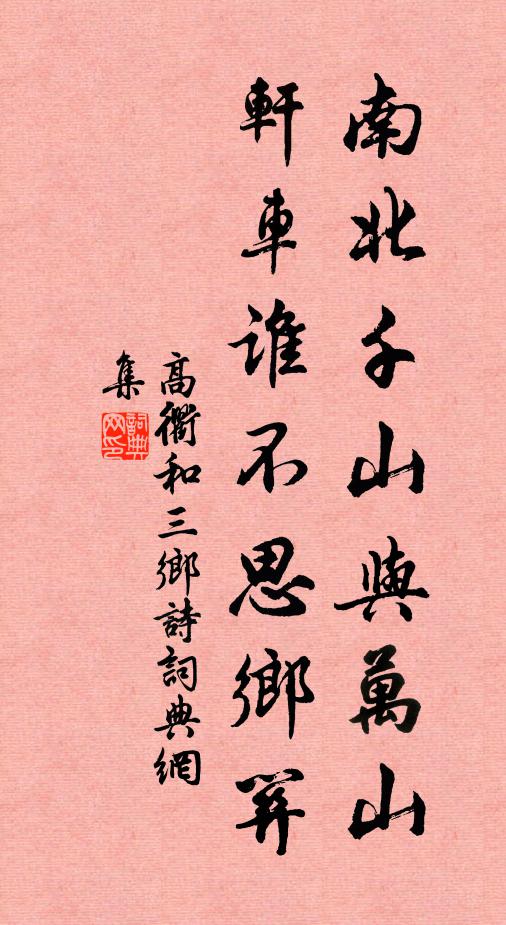 南北千山與萬山
軒車誰不思鄉關
高衢和三鄉詩詞典網
集
詞典
网印